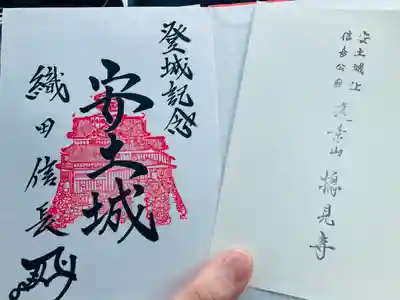 登城記念
安土城
織田信長
安土城址
信長公廟
遠景山 摠見寺